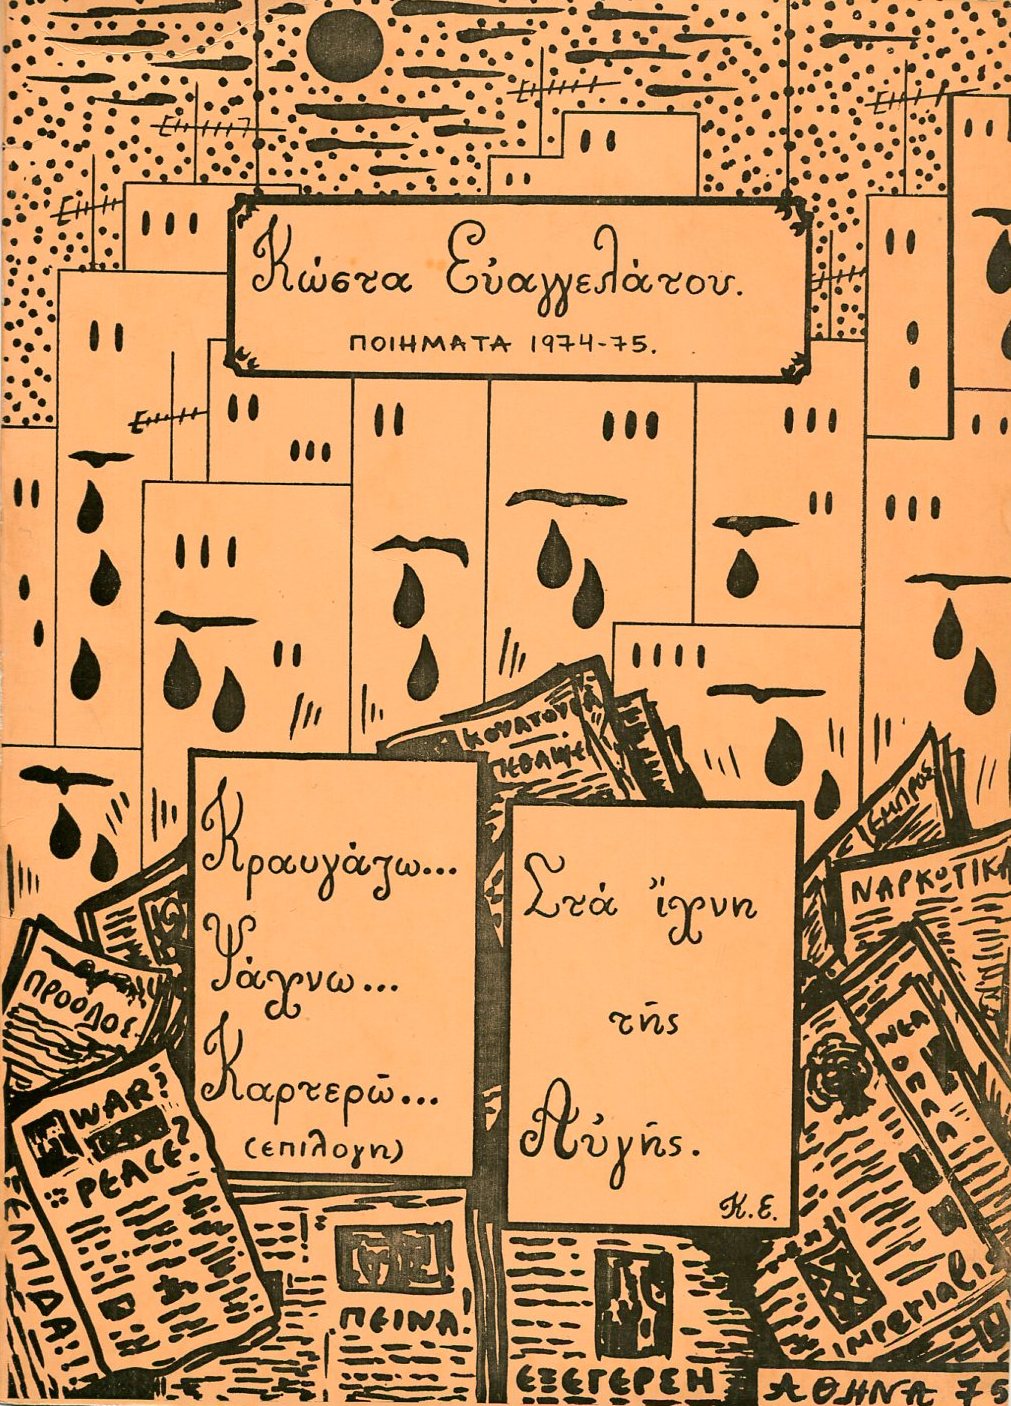 Κώστα Εὐαγγελάτου.
ΠΟΙΗΜΑΤΑ 1974-75.
ΚΟΥΛΤΟΥΡΑ
ΠΕΘΑΙΝΕΙ
Κραυγάζω...
Ψάχνω...
Καρτερῶ...
(επιλογη)
Στά ἴχνη
τῆς
Αὐγῆς.
Κ.Ε.
ΕΜΠΡΟΣ
ΝΑΡΚΩΤΙΚΑ
ΠΡΟΟΔΟΣ.
WAR?
PEACE?
ΕΛΠΙΔΑ!!
ΠΕΙΝΑ!
ΕΞΕΓΕΡΣΗ
ΝΕΑ
ΟΠΛΑ
IMPERIALIS
ΑΘΗΝΑ 75